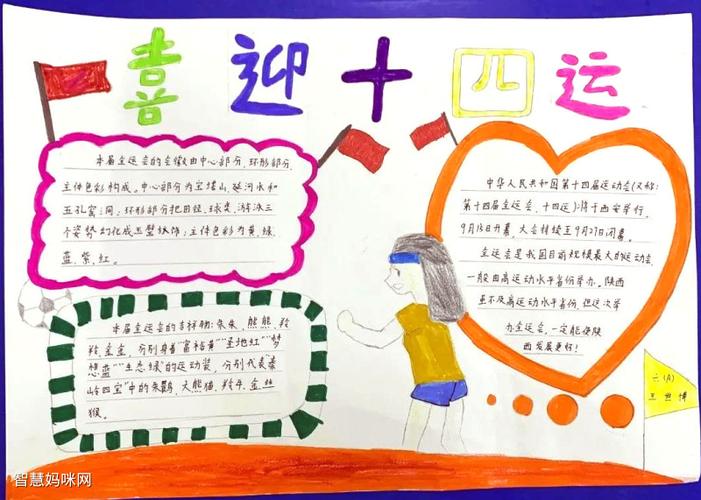 喜迎十四运
本届全运会的会徽由中心部分、环形部分、
主体色彩构成。中心部分为宝塔山、延河水和
五孔窑洞;环形部分把田径、球类、游泳三
个姿势幻化成玉璧纹饰;主体色彩为黄、绿、
蓝、紫、红。
中华人民共和国第十四届运动会(又称:
第十四届全运会、十四运):将于西安举行。
9月15日开幕,大会持续至9月27日闭幕。
全运会是我国目前规模最大的运动会,
一般由高运动水平省份举办。陕西
虽不及高运动水平省份,但这次举
办全运会,一定能使陕
西发展更好!
本届全运会的吉祥物:朱朱、熊熊、羚
羚、金金,分别身着"富裕黄""圣地红""梦
想蓝""生态绿"的运动装,分别代表秦
岭四宝"中的朱鹮、大熊猫、羚牛、金丝
猴。
六(A)
王世博
智慧妈咪网